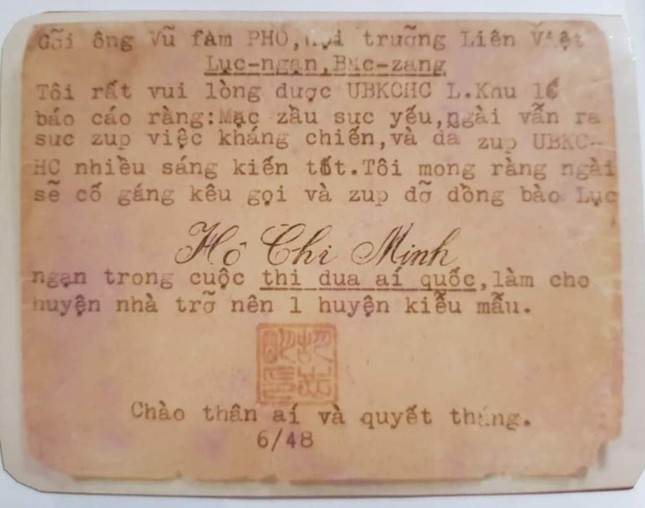 Gỡi ông Vũ fàm PHO, hội trưỡng Liên Việt
Lục-ngạn, Bắc-zang
Tôi rất vui lòng dược UBKCHC L.Khu 1
báo cáo ràng:Mạc zầu sực yếu,ngài vẫn ra
sưc zup việc kháng chiến,và dã zup UBKC-
HC nhiều sáng kiến tốt.Tôi mong ràng ngài
sẽ cố gáng kêu gọi và zup dỡ dồng bào Lục
Hồ Chí Minh
ngạn trong cuộc thi dua aí quốc,làm cho
huyện nhà trỡ nên 1 huyện kiễu mẫu.
Chào thân aí và quyết tháng.
6/48